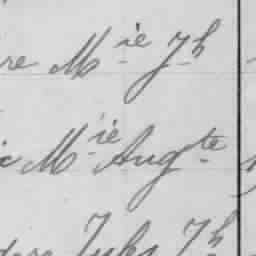 re Mie Jh
ie Mie Augte
dore Jules Jh